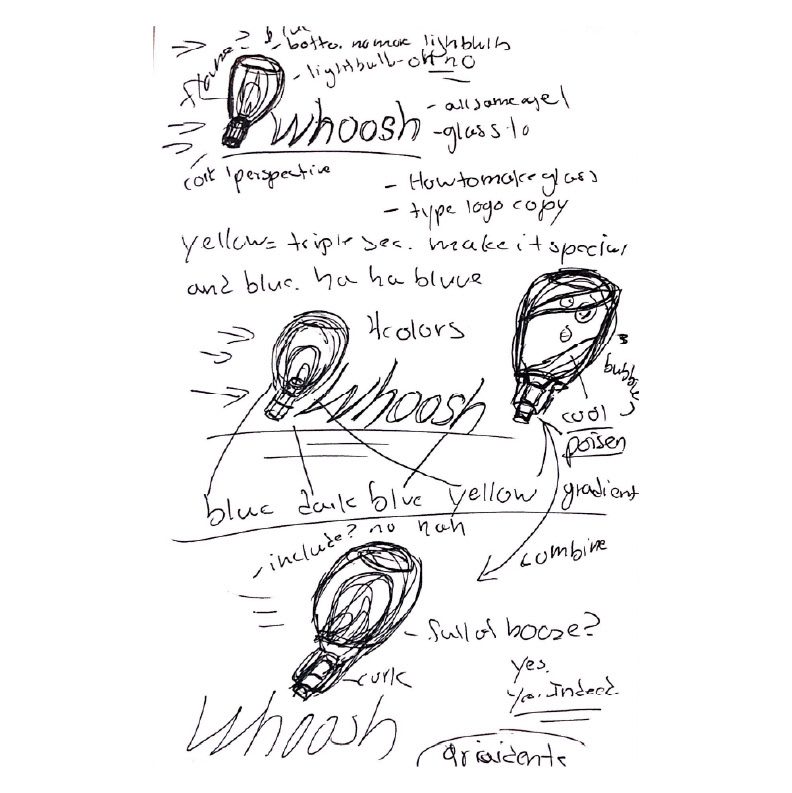 flame? blue
- botto. no mor lighbulb
- lightbulb - off no
Whoosh
- all same age
- glass to
cork perspective
- How to make glass
- type logo copy
yellow= triple sec. make it special
and blue. ha ha bluue
4 colors
Whoosh
bubbles
cool
poisen
blue dark blue yellow gradient
- include? no nah
combine
- full of booze?
yes.
yes. Indeed.
- curk
Whoosh